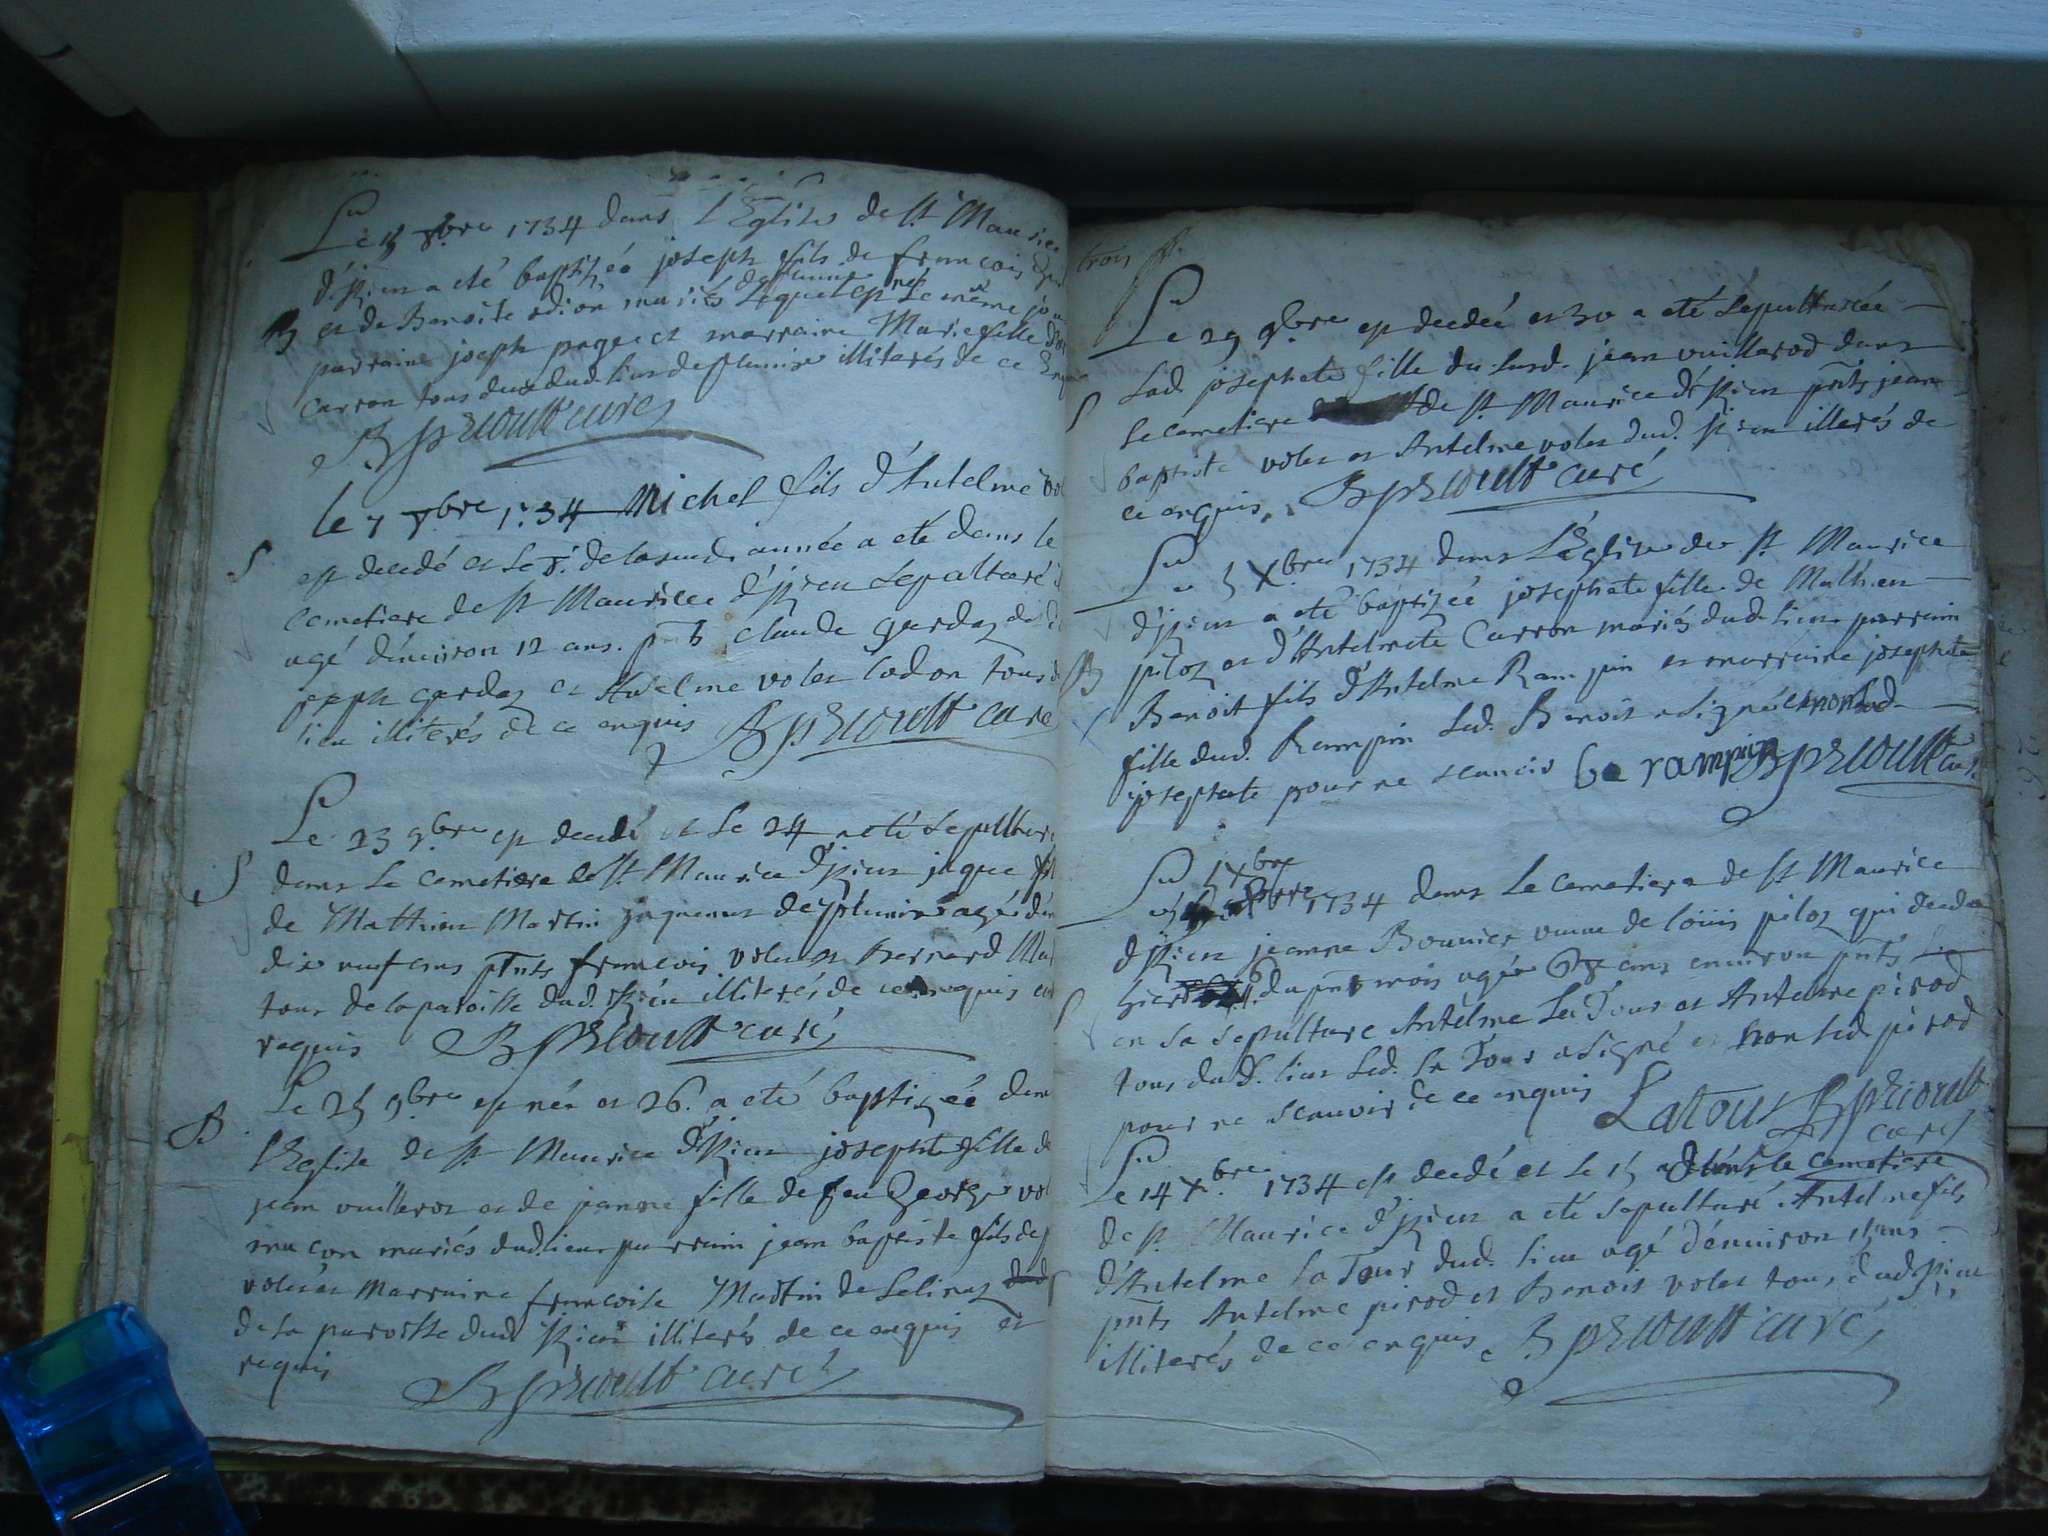 Le 5 8bre 1734 dans l'Eglise de st Maurice
d'izieu a eté baptizéo joseph fils de francois
B et de Benoite mariés de plumine lequel est né le même jour
parraine joseph pages et marraine Marie fille
carron tous deux dud. lieu de plumine illiterés de ce
B prioult curé
le 7 8bre 1734 Michel fils d'Antelme
S est decedé et le 8e de lasusd. année a eté dans le
cemetiere de st Maurice d'izieu sepulturé
agé d'enuiron 12 ans. pnts claude gardaz
joseph gardaz et Antelme volet tous
lieu illiterés de ce enquis B prioult curé
Le 23 9bre est decedé et le 24 a eté sepulturé
S dans le cemetiere de st Maurice d'izieu jaque
de Matthieu Martin de plumine agé
dix neuf ans pnts francois volet et bernard
tous de la paroisse dud. izieu illiterés de ce enquis et
requis B prioult curé
B Le 25 9bre est née et 26. a eté baptizéé dans
l'Eglise de st Maurice d'izieu josephte fille de
jean vuillerot et de janne fille de feu George
maçon mariés dud. lieu parrain jean baptiste fils de
volet et marraine francoise Martin de
de la paroisse dud. izieu illiterés de ce enquis et
requis B prioult curé
trois
Le 29 9bre est decedée et 30 a eté sepulturéé
lad. josephete fille du susd. jean vuillerod dans
S le cemetiere de st Maurice d'izieu pnts jean
baptiste volet et Antelme volet dud. izieu illerés de
ce enquis. B prioult curé
Le 5 Xbre 1734 dans l'Eglise de st Maurice
d'izieu a eté baptizéé josephete fille de Mathieu
B piloz et d'Antelmete Carron mariéz dud. lieu parrain
Benoit fils d'Antelme Rampin et marraine josephte
fille dud. Rampin led. Benoit a signé et non lad.
josephte pour ne scauoir be rampin B prioult curé
Le Xbre 1734 dans le cemetiere de st Maurice
d'izieu jeanne Bounier vuve de loüis piloz qui deceda
S hier du pnt mois agée ans enuiron pnts
en sa sepulture Antelme La Tour et Antelme pirod
tous dud. lieu led. La Tour a signé et non led. pirod
pour ne scauoir de ce enquis Latour B prioult
curé
Le 14 Xbre 1734 est decedé et le 15 dans le cemetiere
de st Maurice d'izieu a eté sepulturé Antelme fils
d'Antelme la Tour dud. lieu agé d'enuiron ans
pnts Antelme pirod et Benoit volet tous dud. izieu
illiterés de ce enquis B prioult curé